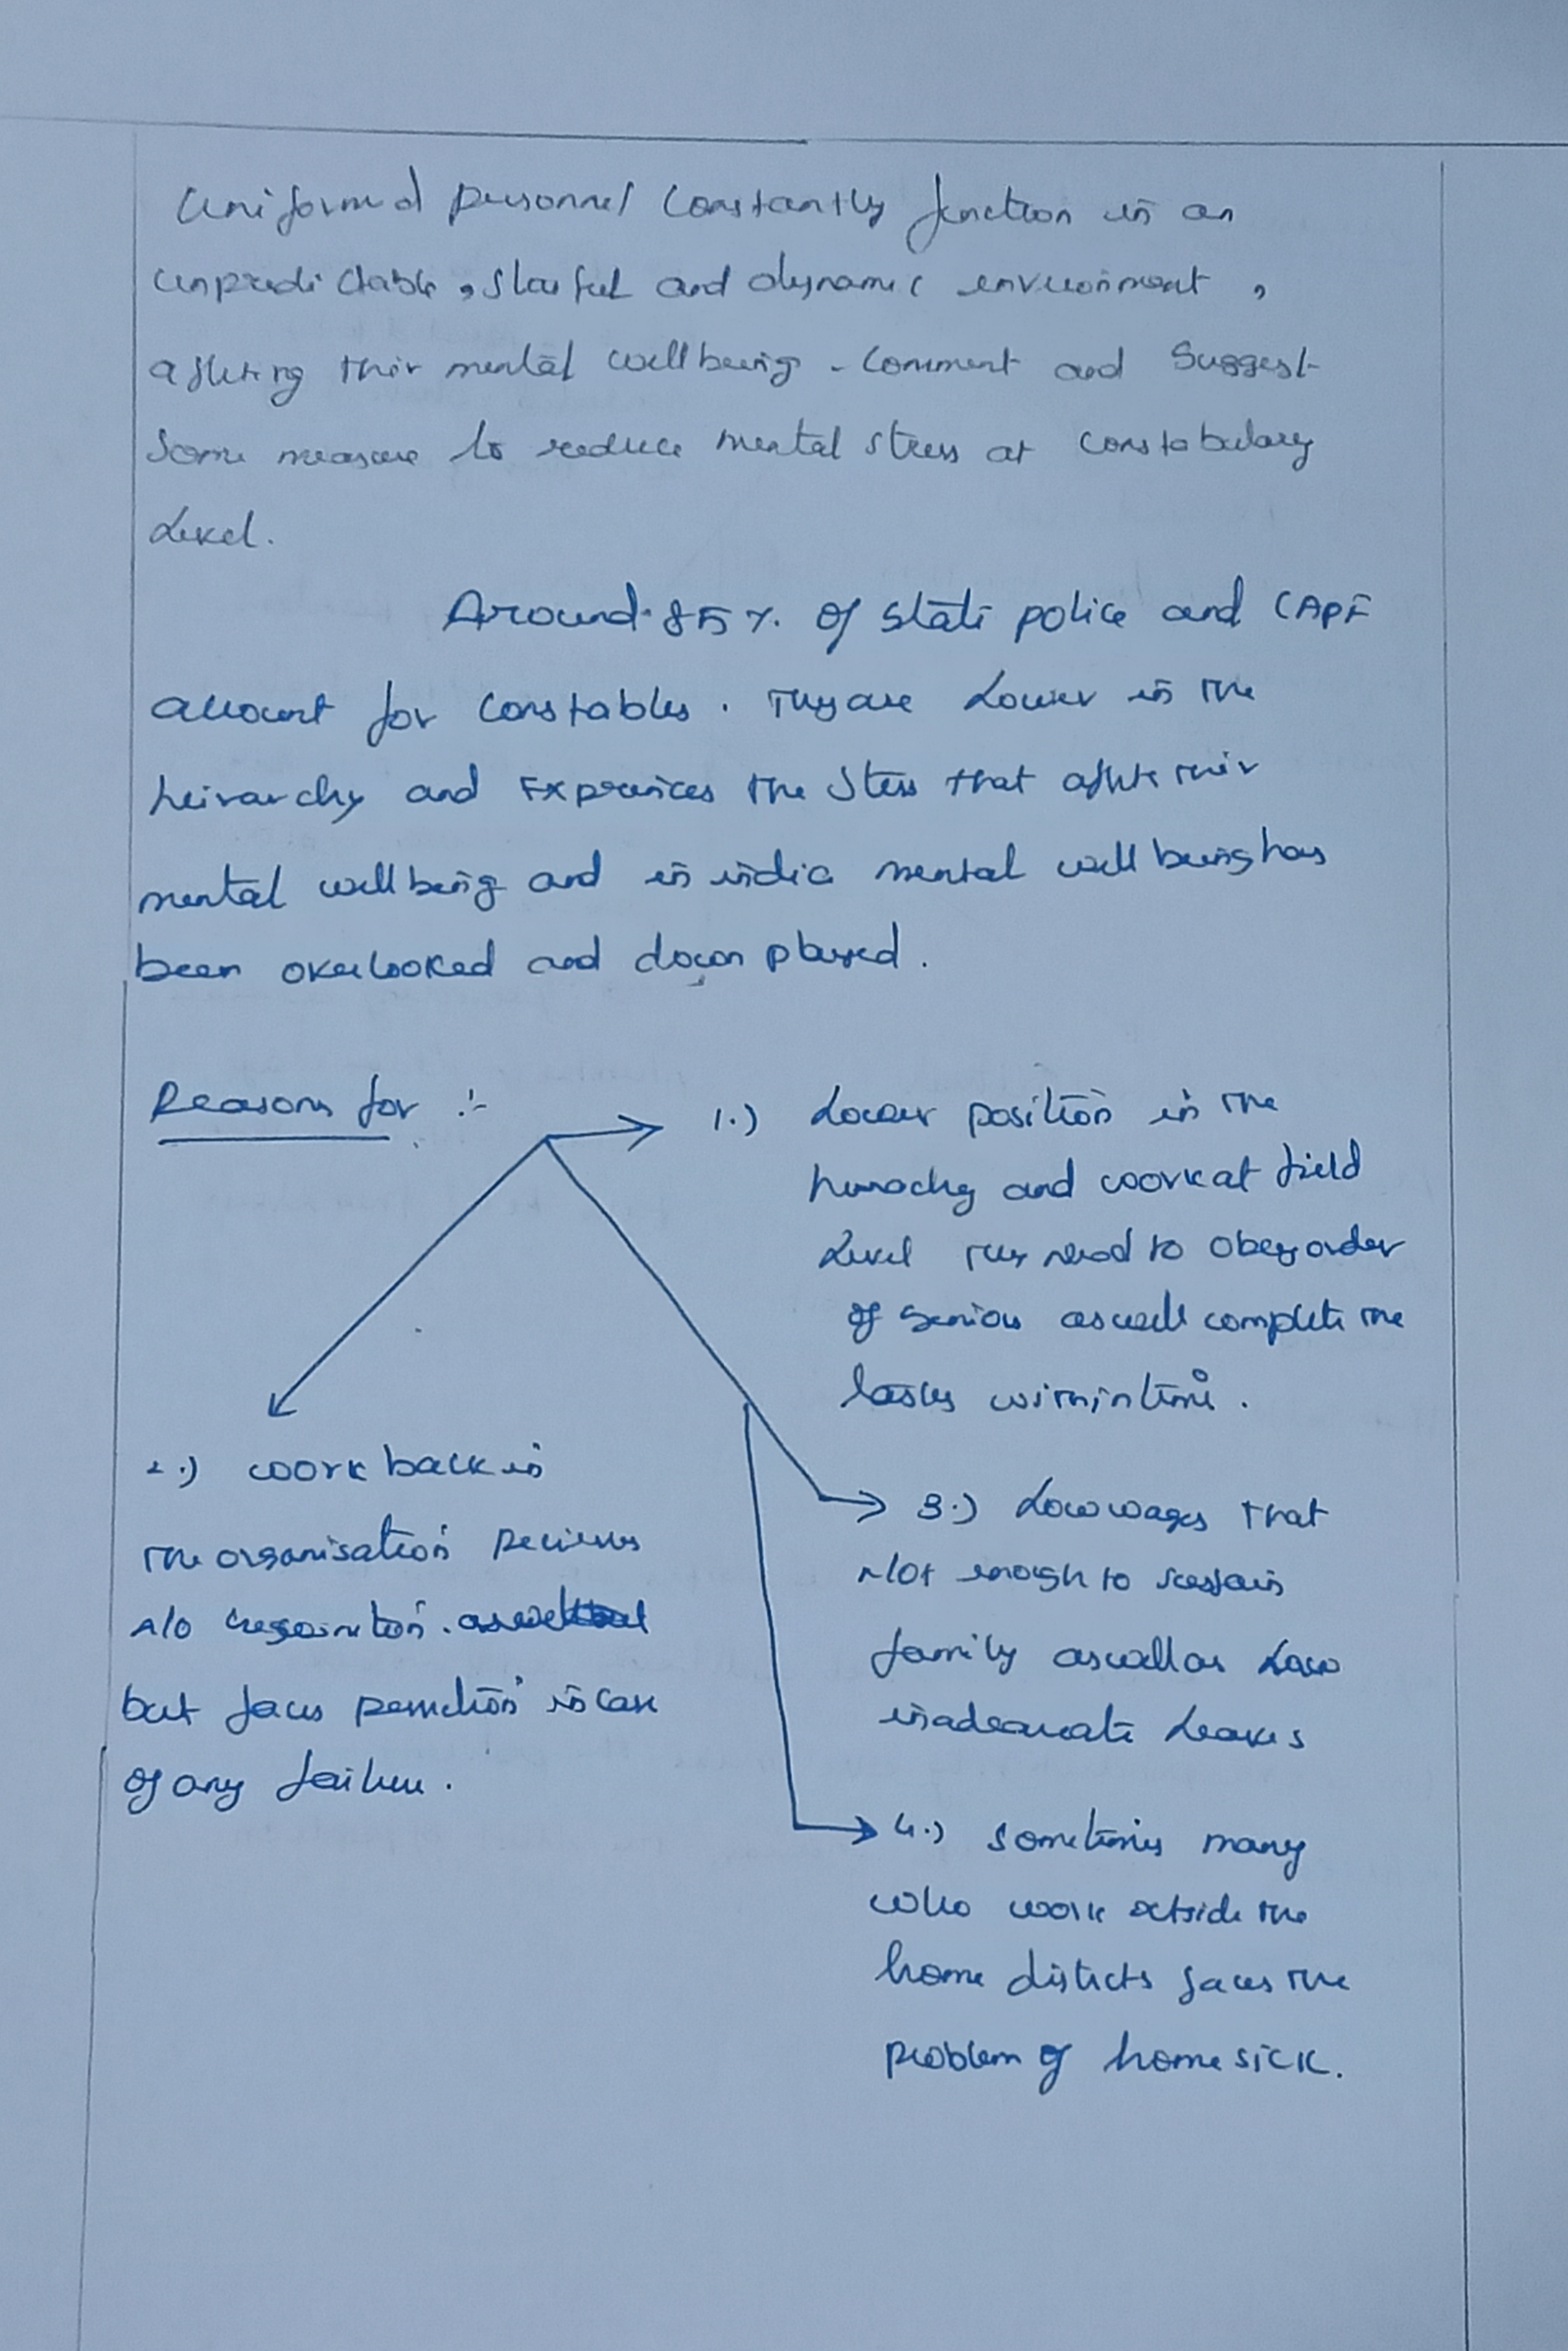 Uniformed personnel constantly function in an
unpredictable, stressful and dynamic environment,
affecting their mental wellbeing. Comment and Suggest
Some measure to reduce mental stress at constabulary
Level.
Around 85%. of state police and CAPF
account for constables. They are Lower in the
heirarchy and Expreinces the Stess that affects their
mental wellbeing and in india mental wellbeing has
been overlooked and down played.
Reasons for :-
1.) Lower position in the
hierachy and work at field
Level they need to obey order
of seniors as well complete the
tasks within time.
2.) work back in
the organisation recieves
No recognition.
but faces punction in case
of any failure.
3.) Low wages that
Not enough to sustain
family as well as Law
inadequate Leaves
4.) sometimes many
who work outside the
home disticts faces the
problem of home sick.